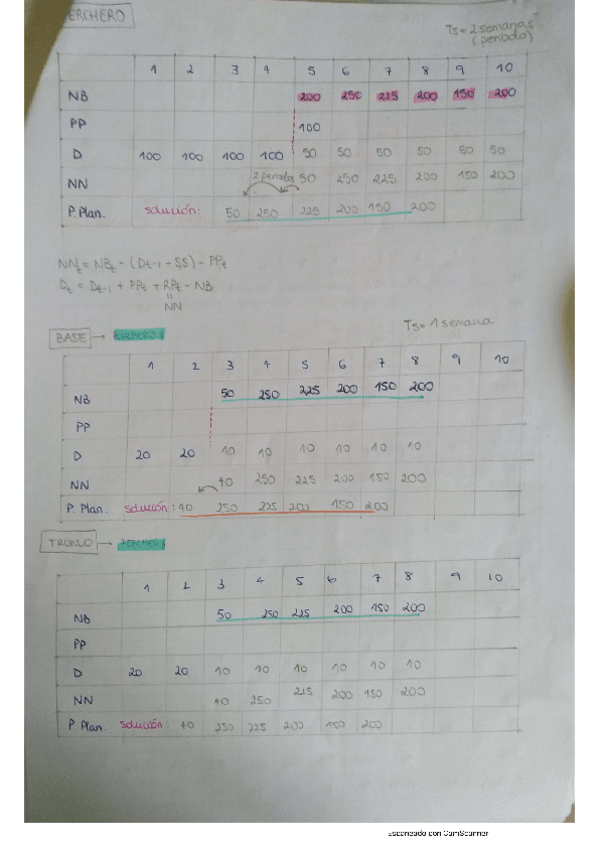 PERCHERO
Ts = 2 semanas
(periodo)
1 2 3 4 5 6 7 8 9 10
NB 200 250 225 200 150 200
PP 100
D 100 100 100 100 50 50 50 50 50 50
NN 2 periodos 50 250 225 200 150 200
P. Plan. solución: 50 250 225 200 150 200
NNt = NBt - (Dt-1 - SS) - PPt
Dt = Dt-1 + PPt + RPt - NB
"
NN
Ts = 1 semana
BASE → PERCHERO
1 2 3 4 5 6 7 8 9 10
NB 50 250 225 200 150 200
PP
D 20 20 10 10 10 10 10 10
NN 40 250 225 200 150 200
P. Plan. solución: 40 250 225 200 150 200
TRONCO →
1 2 3 4 5 6 7 8 9 10
NB 50 250 225 200 150 200
PP
D 20 20 10 10 10 10 10 10
NN 40 250 225 200 150 200
P Plan. solución: 40 250 225 200 150 200
Escaneado con CamScanner